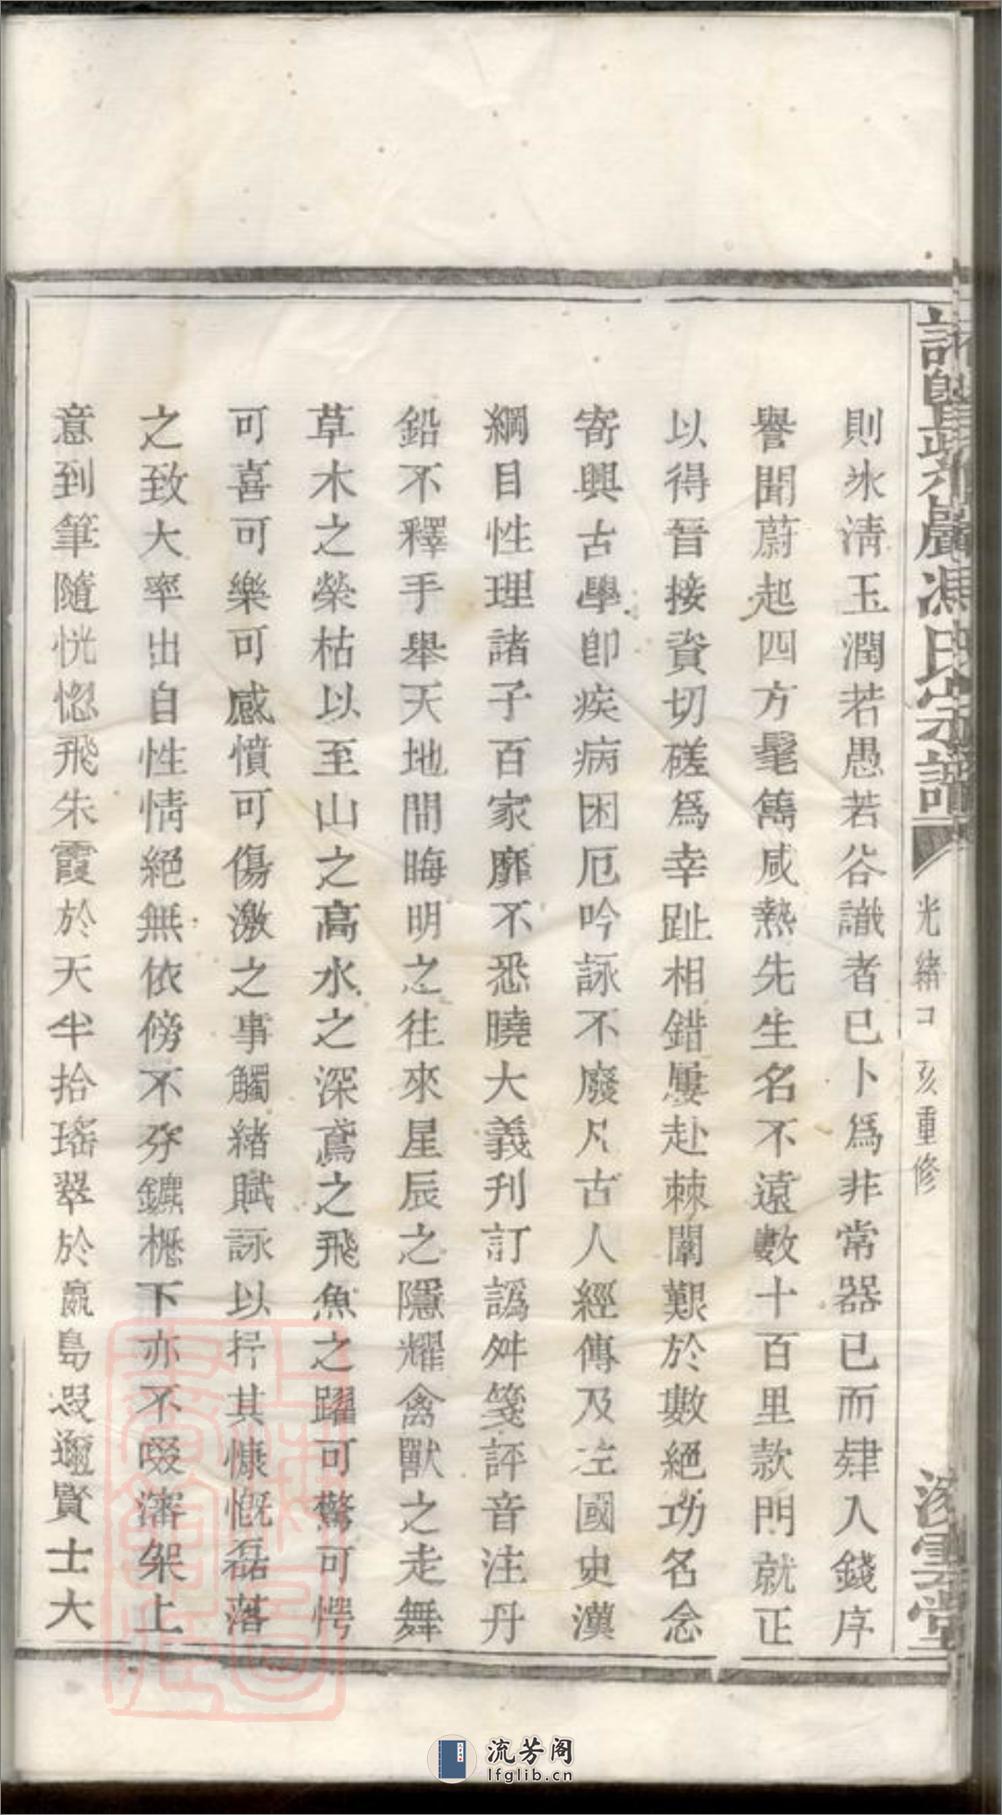 諸暨 馮氏宗譜
光緒 亥重修
雲堂
則氷淸玉潤若愚若谷識者已卜爲非常器已而肄入錢序
譽聞蔚起四方髦雋咸熱先生名不遠數十百里款門就正
以得晉接資切磋爲幸趾相錯屢赴棘闈艱於數絕功名念
寄興古學卽疾病困厄吟詠不廢凡古人經傳及左國史漢
綱目性理諸子百家靡不悉曉大義刊訂譌舛箋評音注丹
鉛不釋手舉天地間晦明之往來星辰之隱耀禽獸之走舞
草木之榮枯以至山之高水之深鳶之飛魚之躍可驚可愕
可喜可樂可感憤可傷激之事觸緒賦詠以抒其慷慨磊落
之致大率出自性情絕無依傍不夯鑣橛下亦不啜瀋架上
意到筆隨恍惚飛朱霞於天半拾瑤翠於嬴島遐邇賢士大
流芳阁
lfglib.cn